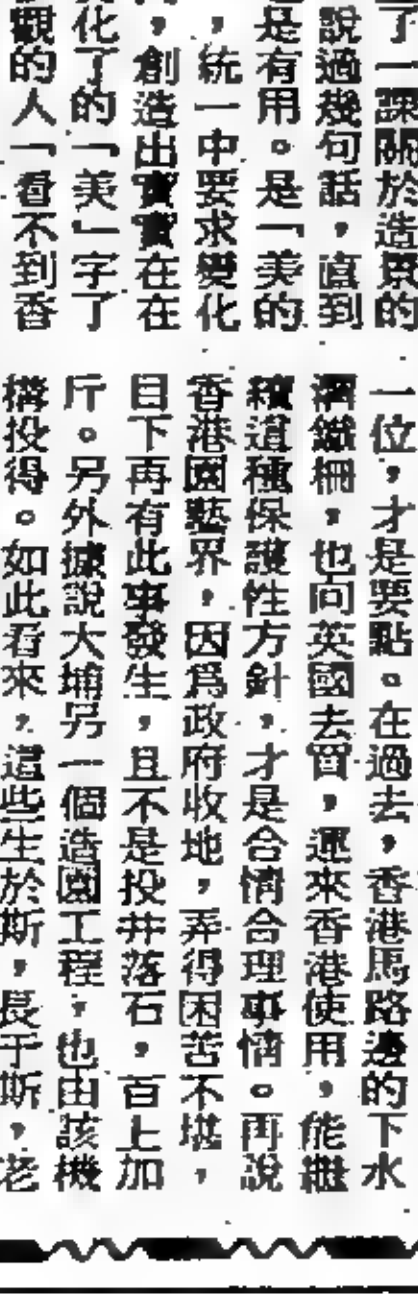 了一課關於造景的
說過幾句話，直到
是有用。是「美的
，統一中要求變化
，創造出實實在在
化了的「美」字了
觀的人「看不到香
一位，才是要點。在過去，香港馬路邊的下水
鐵柵，也向英國去買，運來香港使用，能繼
續這種保護性方針，才是合情合理事情。再說
香港園藝界，因爲政府收地，弄得困苦不堪，
目下再有此事發生，且不是投井落石，百上加
斤。另外據說大埔另一個造園工程，也由該機
構投得。如此看來，這些生於斯，長于斯，老